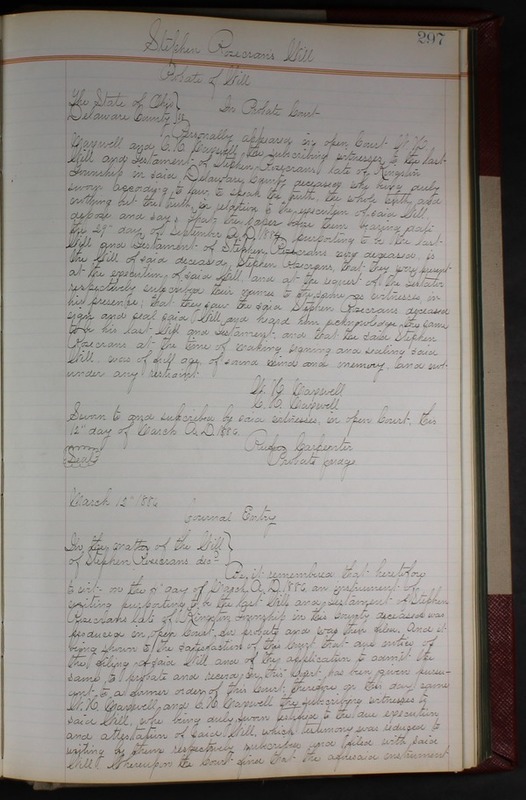 297
Stephen Rosecrans Will
Probate of Will
The State of Ohio }
Delaware County } ss In Probate Court
Personally appeared in open Court W. N.
Caswell and C. N. Caswell the subscribing witnesses to the last
Will and Testament of Stephen Rosecrans late of Kingston
Township in said Delaware County deceased who being duly
sworn according to law, to speak the truth, the whole truth and
nothing but the truth, in relation to the execution of said Will
depose and say; that the paper before them bearing date
the 29" day of September A.D. 1884, purporting to be the last
Will and Testament of Stephen Rosecrans now deceased, is
the Will of said deceased, Stephen Rosecrans, that they were present
at the execution of said Will and at the request of the testator
respectively subscribed their names to the same as witnesses in
his presence; that they saw the said Stephen Rosecrans deceased
sign and seal said Will and heard him acknowledge the same
to be his last Will and Testament, and that the said Stephen
Rosecrans at the time of making signing and sealing said
Will, was of full age, of sound mind and memory, and not
under any restraint.
W. N. Caswell
C. N. Caswell
Sworn to and subscribed by said witnesses, in open Court, this
12" day of March A.D. 1886.
Seal Carpenter
Probate Judge
March 12" 1886
Journal Entry
In the matter of the Will }
of Stephen Rosecrans decd }
Be it remembered that heretofore
to wit: on the day of March A.D. 1886, an instrument of
writing purporting to be the last Will and Testament of Stephen
Rosecrans late of Kingston Township in this County deceased was
produced in open Court for probate and was then filed. And it
being shown to the satisfaction of the Court that due notice of
the filing of said Will and of the application to admit the
same to probate and record in this Court has been given pursu-
ant to a former order of this Court, therefore on this day came
W. N. Caswell, and C. N. Caswell the subscribing witnesses to
said Will, who being duly sworn testified to the due execution
and attestation of said Will, which testimony was reduced to
writing by them respectively subscribed and filed with said
Will. Whereupon the Court find that the aforesaid instrument